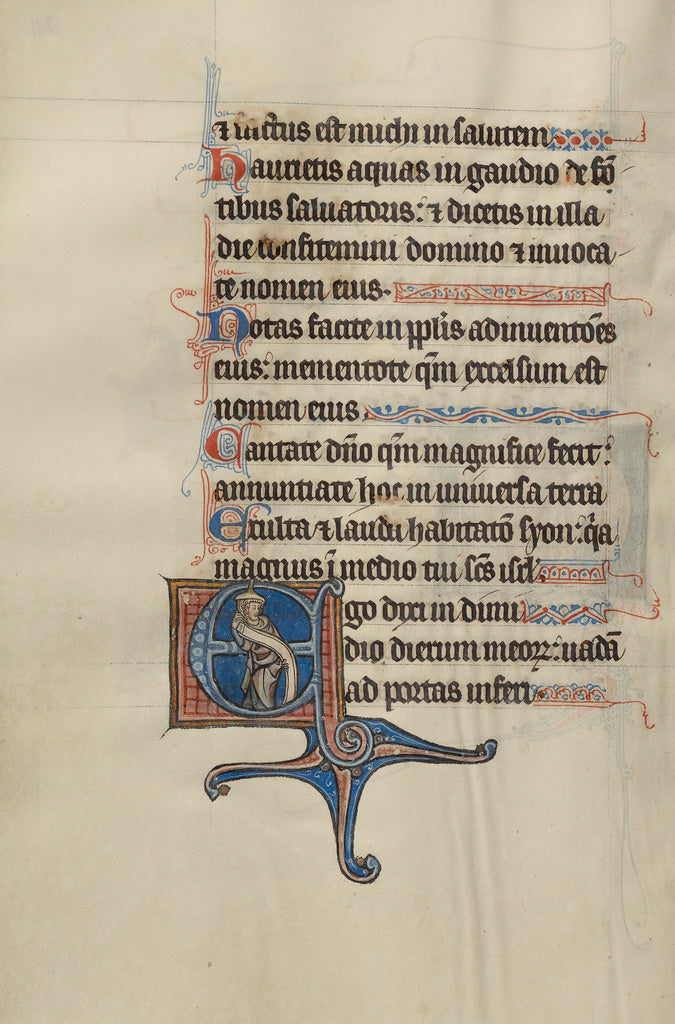 ⁊ factus est michi in salutem
Haurietis aquas in gaudio de fō
tibus saluatoris: ⁊ dicetis in illa
die confitemini domino ⁊ inuoca
te nomen eius.
Notas facite in pp̄lis adinuentōes
eius: mementote qm̄ excelsum est
nomen eius.
Cantate dn̄o qm̄ magnifice fecit:
annuntiate hoc in uniuersa terra
Exulta ⁊ lauda habitatō syon: q̄a
magnus ī medio tui sc̄s isrl̄.
Ego dixi in dimi
dio dierum meoꝝ: uadā
ad portas inferi